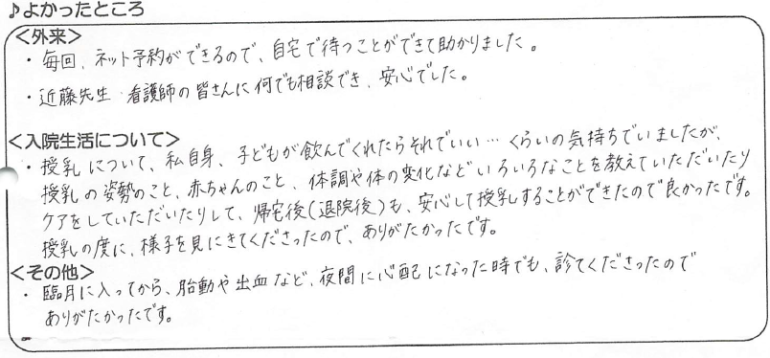 ♪よかったところ
＜外来＞
・毎回、ネット予約ができるので、自宅で待つことができて助かりました。
・近藤先生、看護師の皆さんに何でも相談でき、安心でした。
＜入院生活について＞
・授乳について、私自身、子どもが飲んでくれたらそれでいい…くらいの気持ちでいましたが、
授乳の姿勢のこと、赤ちゃんのこと、体調や体の変化などいろいろなことを教えていただいたり
ケアをしていただいたりして、帰宅後（退院後）も、安心して授乳することができたので良かったです。
授乳の度に、様子を見にきてくださったので、ありがたかったです。
＜その他＞
・臨月に入ってから、胎動や出血など、夜間に心配になった時でも、診てくださったので
ありがたかったです。